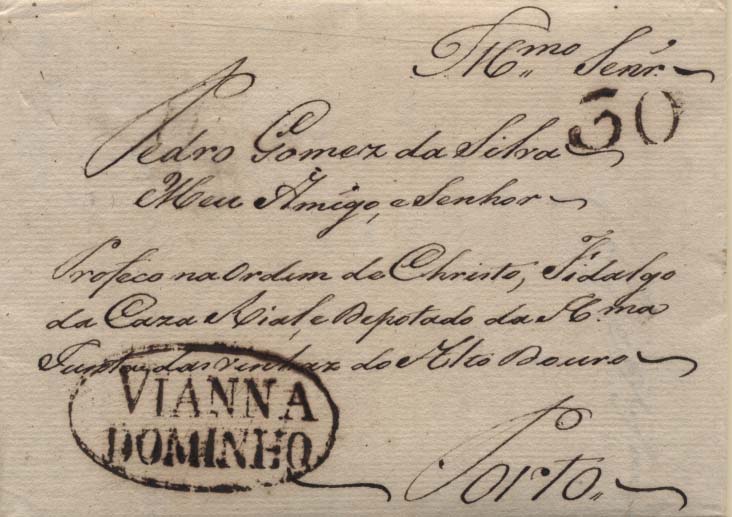 Illmo Senr.
30
Pedro Gomez da Silva
Meu Amigo, e Senhor
Profeco na Ordem de Christo, Fidalgo
da Caza Rial, e Depotado da Illma
Junta das vinhaz do Alto Douro
VIANNA
DOMINHO
Porto